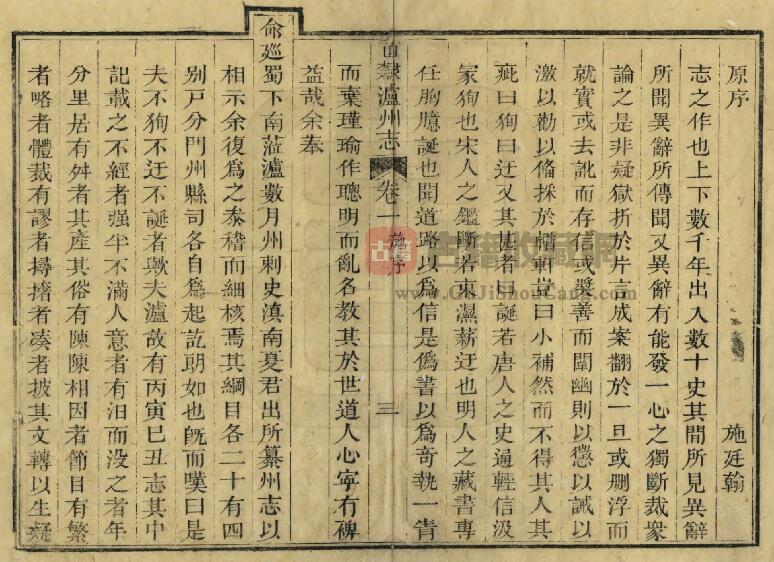 原序
施廷翰
志之作也上下數千年出入數十史其間所見異辭
所聞異辭所傳聞又異辭有能發一心之獨斷裁衆
論之是非疑獄折於片言成案翻於一旦或删浮而
就實或去訛而存信或奬善而闡幽則以懲以誡以
激以勸以俻採於輶軒豈曰小補然而不得其人其
疵曰狥曰迂又其甚者曰誕若唐人之史過輕信汲
冢狥也宋人之鑑斷若束濕薪迂也明人之藏書專
任胸臆誕也聞道路以爲信是僞書以爲竒執一眚
而棄瑾瑜作聰明而亂名教其於世道人心寜有裨
益哉余奉
直隸瀘州志 卷一 施序 三
命廵蜀下南蒞瀘數月州刺史滇南夏君出所纂州志以
相示余復爲之叅稽而細核焉其綱目各二十有四
别戸分門州縣司各自爲起訖朗如也旣而嘆曰是
夫不狥不迂不誕者歟夫瀘故有丙寅巳丑志其中
記載之不經者强半不滿人意者有汨而没之者年
分里居有舛者其產其俗有陳陳相因者節目有繁
者略者體裁有謬者撏撦者湊者披其文轉以生疑
古籍
古籍收藏网
www.GuJiShouCang.com